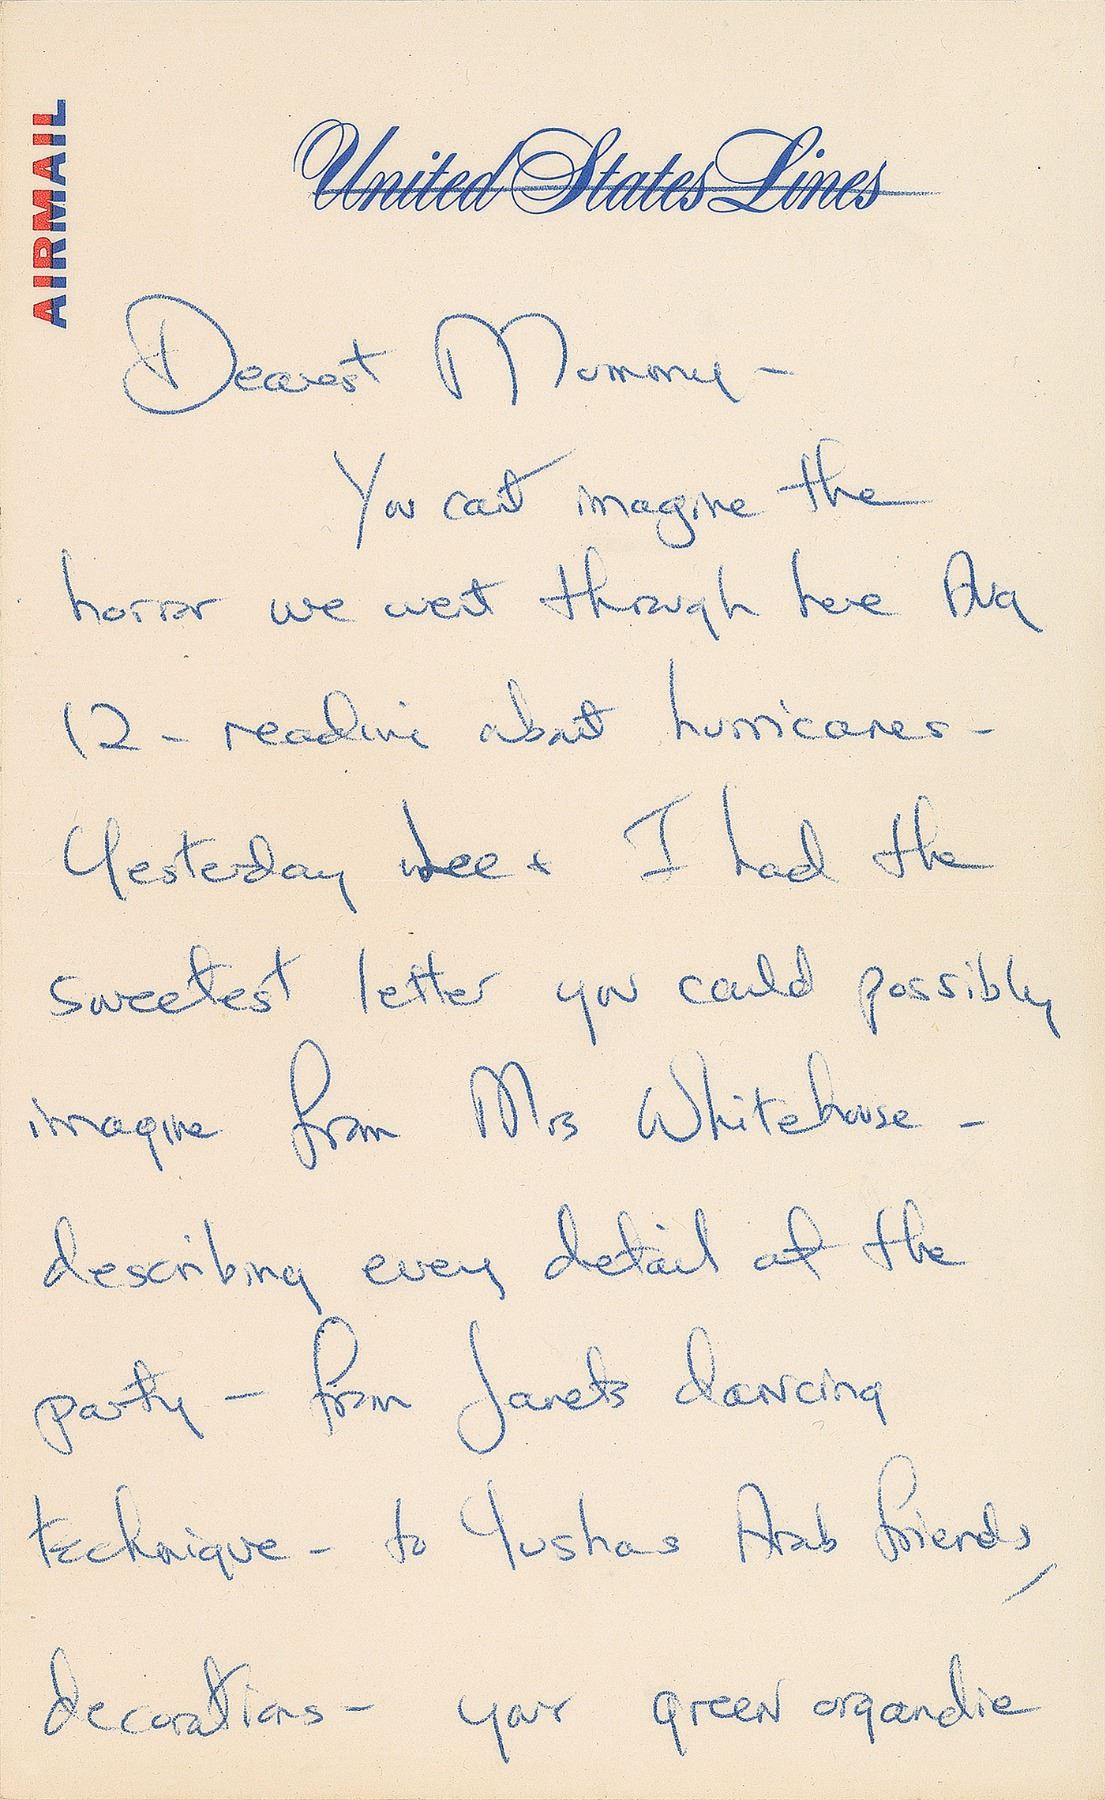 AIRMAIL
United States Lines
Dearest Mummy -
You can't imagine the
horror we went through here Aug
12 - reading about hurricanes -
Yesterday Lee + I had the
sweetest letter you could possibly
imagine from Mrs Whitehouse -
describing every detail of the
party - from Janets dancing
technique - to Yushas Arab friends,
decorations - your green organdie